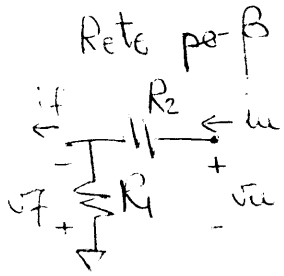 Rete per β
if
R2
iu
-
+
vf
+
R1
vu
-